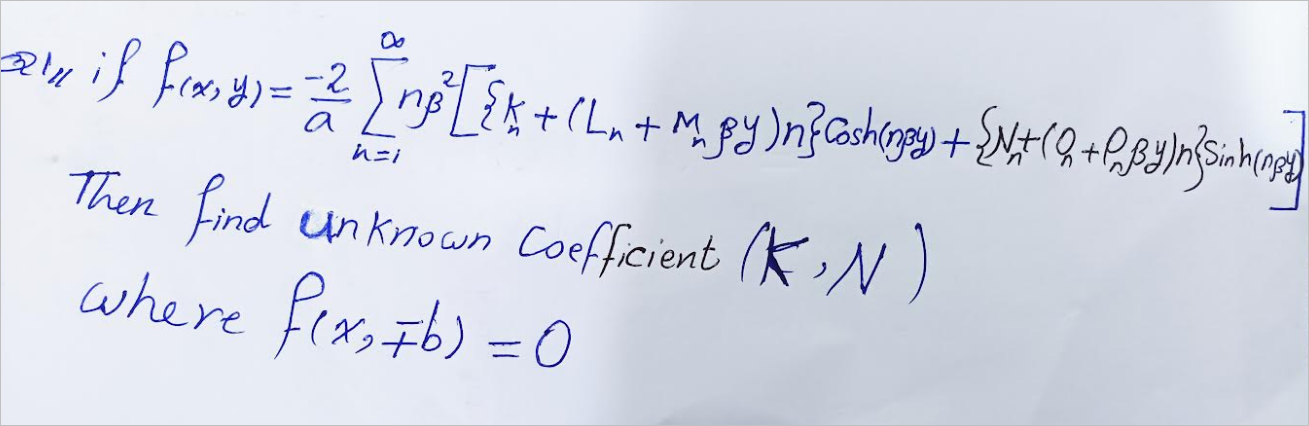 if f(x,y) = -2/a ∑_{n=1}^{∞} nβ² [{K_n + (L_n + M_n βy)n} Cosh(nβy) + {N_n + (O_n + P_n βy)n} Sinh(nβy)]
Then find unknown Coefficient (K, N)
where f(x, ∓b) = 0